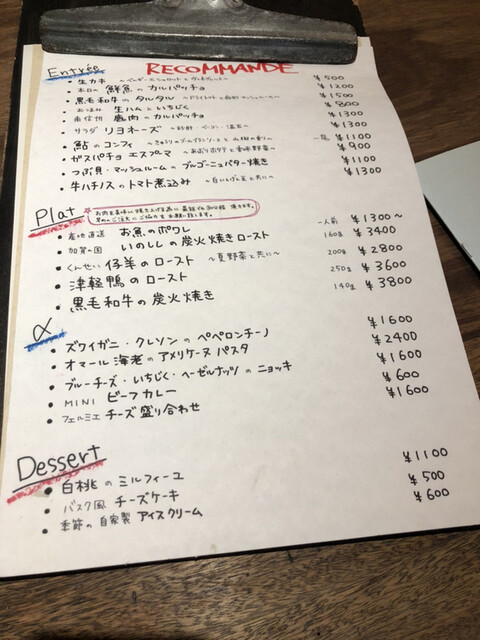 Entrée RECOMMANDE
・生カキ ¥500
・本日の 鮮魚のカルパッチョ ¥1200
・黒毛和牛のタルタル ¥1500
・生ハムといちじく ¥800
・南信州 鹿肉のカルパッチョ ¥1300
・サラダ リヨネーズ ¥1300
・鮎のコンフィ 一尾 ¥1100
・ガスパチョ エスプーマ ¥900
・つぶ貝・マッシュルームのブルゴーニュバター焼き ¥1100
・牛ハチノスのトマト煮込み ～白いんげん豆と共に～ ¥1300
Plat
・産地直送 お魚のポワレ 一人前 ¥1300～
・加賀の國 いのししの炭火焼きロースト 160g ¥3400
・くんせい 仔羊のロースト ～夏野菜と共に～ 200g ¥2800
・津軽鴨のロースト 250g ¥3600
・黒毛和牛の炭火焼き 140g ¥3800
α
・ズワイガニ・クレソンのペペロンチーノ ¥1600
・オマール海老のアメリケーヌパスタ ¥2400
・ブルーチーズ・いちじく・ヘーゼルナッツのニョッキ ¥1600
・MINI ビーフカレー ¥600
・フェルミエ チーズ盛り合わせ ¥1600
Dessert
・白桃のミルフィーユ ¥1100
・バスク風 チーズケーキ ¥500
・季節の自家製アイスクリーム ¥600